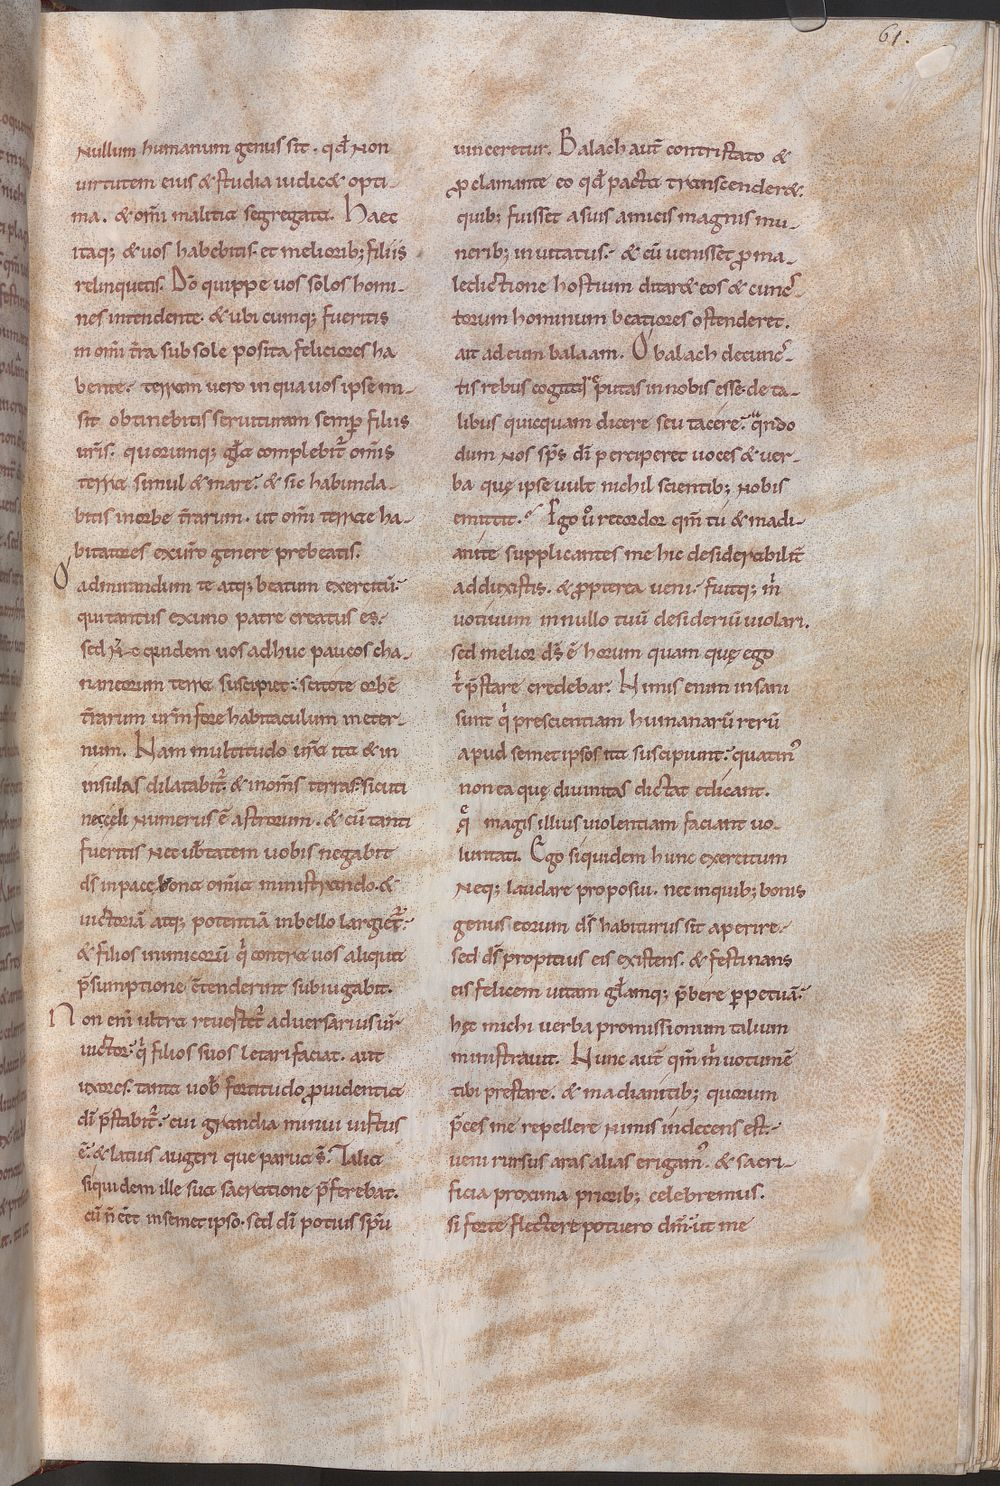 61.
Nullum humanum genus sit. qđ Non
uirtutem eius & studia iudic& opti-
ma. & om̄i malitia segregata. Haec
itaq; & uos habebitis. et melioribꝫ filiis
relinquetis. Dō quippe uos solos homi-
nes intendente. & ubi cumq; fueritis
in om̄i t̄ra sub sole posita feliciores ha
bente. terram uero in qua uos ipse mi-
sit obtinebitis seruituram semꝑ filiis
ur̄is. quorumq; gl̄a complebit̄ om̄is
terra simul & mare. & sic habunda-
bitis inorbe t̄rarum. ut om̄i terrae ha-
bitatores exur̄o genere prebeatis.
O admirandum te atq; beatum exercitū.
qui tantus exuno patre creatus es.
sed N̄c quidem uos adhuc paucos cha-
naneorum terra suscipiet. scitote orbē
t̄rarum ur̄m fore habitaculum in eter-
num. Nam multitudo ur̄a ita & in
insulas dilatabit̄. & inom̄s terras. sicuti
nec celi Numerus ē astrorum. & cū tanti
fueritis Nec ub̄tatem uobis negabit
ds̄ inpace bona om̄ia ministrando. &
uictoriā atq; potentiā inbello largiet̄.
& filios inimicorū q̄ contra uos aliqua
p̄sumptione c̄tenderint subiugabit.
Non eni ultra reuertet̄ aduersarius ur̄
uictor. q̄ filios suos letari faciat. aut
uxores. tanta uob̄ fortitudo ꝓuidentia
dī p̄stabit̄. cui grandia minui iustus
ē. & latius augeri que parua s̄. Talia
siquidem ille sua sacratione p̄ferebat.
cū n̄ eēt insemet ipso. sed dī potius sp̄u
uinceretur. Balach aut̄ contristato &
ꝓclamante eo qđ pacta transcender&.
quibꝫ fuisset asuis amicis magnis mu-
neribꝫ inuitatus. & cū uenisset ꝓ ma-
ledictione hostium ditar& eos & cunc-
torum hominum beatiores ostenderet.
ait ad eum balaam. O balach decunc-
tis rebus cogitas & putas in nobis esse. de ta-
libus quicquam dicere seu tacere. qn̄do
dum Nos sp̄s dī perciperet uoces & uer-
ba quę ipse uult nichil scientibꝫ Nobis
emittit. Ego u̅ recordor qm̄ tu & madi-
anite supplicantes me hic desiderabilit̄
adduxistis. & propterea ueni. fuitq; m̄
uotiuum in nullo tuū desideriū uiolari.
sed melior ds̄ ē horum quam quę ego
t̄ p̄stare credebar. Nimis enim insani
sunt q̄ prescientiam humanarū rerū
apud semet ipsos ita suscipiunt. quatin̄
non ea quę diuinitas dictat edicant.
q̄ magis illius uiolentiam faciant uo-
luntati. Ego siquidem hunc exercitum
Neq; laudare proposui. nec inquibꝫ bonis
genus eorum ds̄ habiturus sit aperire.
sed ds̄ propitius eis existens. & festinans
eis felicem uitam gl̄amq; p̄bere perpetuā.
hęc michi uerba promissionum talium
ministrauit. Nunc aut̄ qm̄ m̄ uotum ē
tibi prestare. & madianitibꝫ quorum
p̄ces me repellere Nimis indecens est.
ueni rursus aras alias erigam̄. & sacri-
ficia proxima prioribꝫ celebremus.
si forte flectere potuero dm̄. ut me